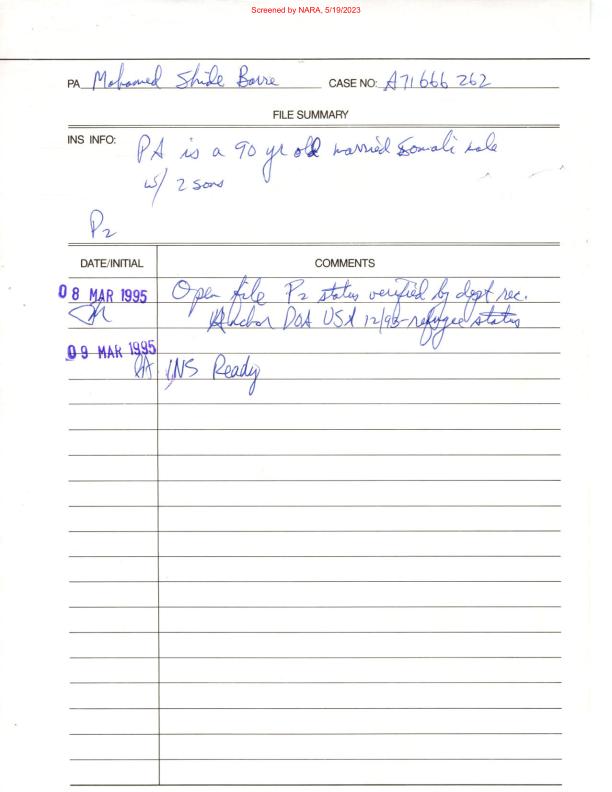 Screened by NARA, 5/19/2023
PA Mohamed Shide Barre CASE NO: A71 666 262
FILE SUMMARY
INS INFO: PA is a 90 yr old married Somali male
w/ 2 sons
P2
DATE/INITIAL COMMENTS
08 MAR 1995 Open file P2 status verified by dept rec.
Anchor DOA USA 12/93-refugee status
09 MAR 1995
INS Ready